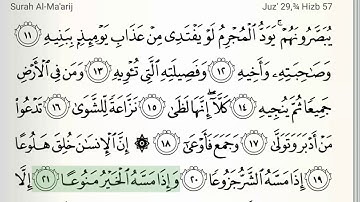 Surah Al-Ma'arij Juz' 29,¾ Hizb 57
يُبَصَّرُونَهُمْ ۚ يَوَدُّ ٱلْمُجْرِمُ لَوْ يَفْتَدِى مِنْ عَذَابِ يَوْمِئِذٍۭ بِبَنِيهِ ١١
وَصَٰحِبَتِهِۦ وَأَخِيهِ ١٢ وَفَصِيلَتِهِ ٱلَّتِى تُـْٔوِيهِ ١٣ وَمَن فِى ٱلْأَرْضِ
جَمِيعًا ثُمَّ يُنجِيهِ ١٤ كَلَّآ ۖ إِنَّهَا لَظَىٰ ١٥ نَزَّاعَةً لِّلشَّوَىٰ ١٦ تَدْعُوا۟
مَنْ أَدْبَرَ وَتَوَلَّىٰ ١٧ وَجَمَعَ فَأَوْعَىٰٓ ١٨ ۞ إِنَّ ٱلْإِنسَٰنَ خُلِقَ هَلُوعًا
١٩ إِذَا مَسَّهُ ٱلشَّرُّ جَزُوعًا ٢٠ وَإِذَا مَسَّهُ ٱلْخَيْرُ مَنُوعًا ٢١ إِلَّا